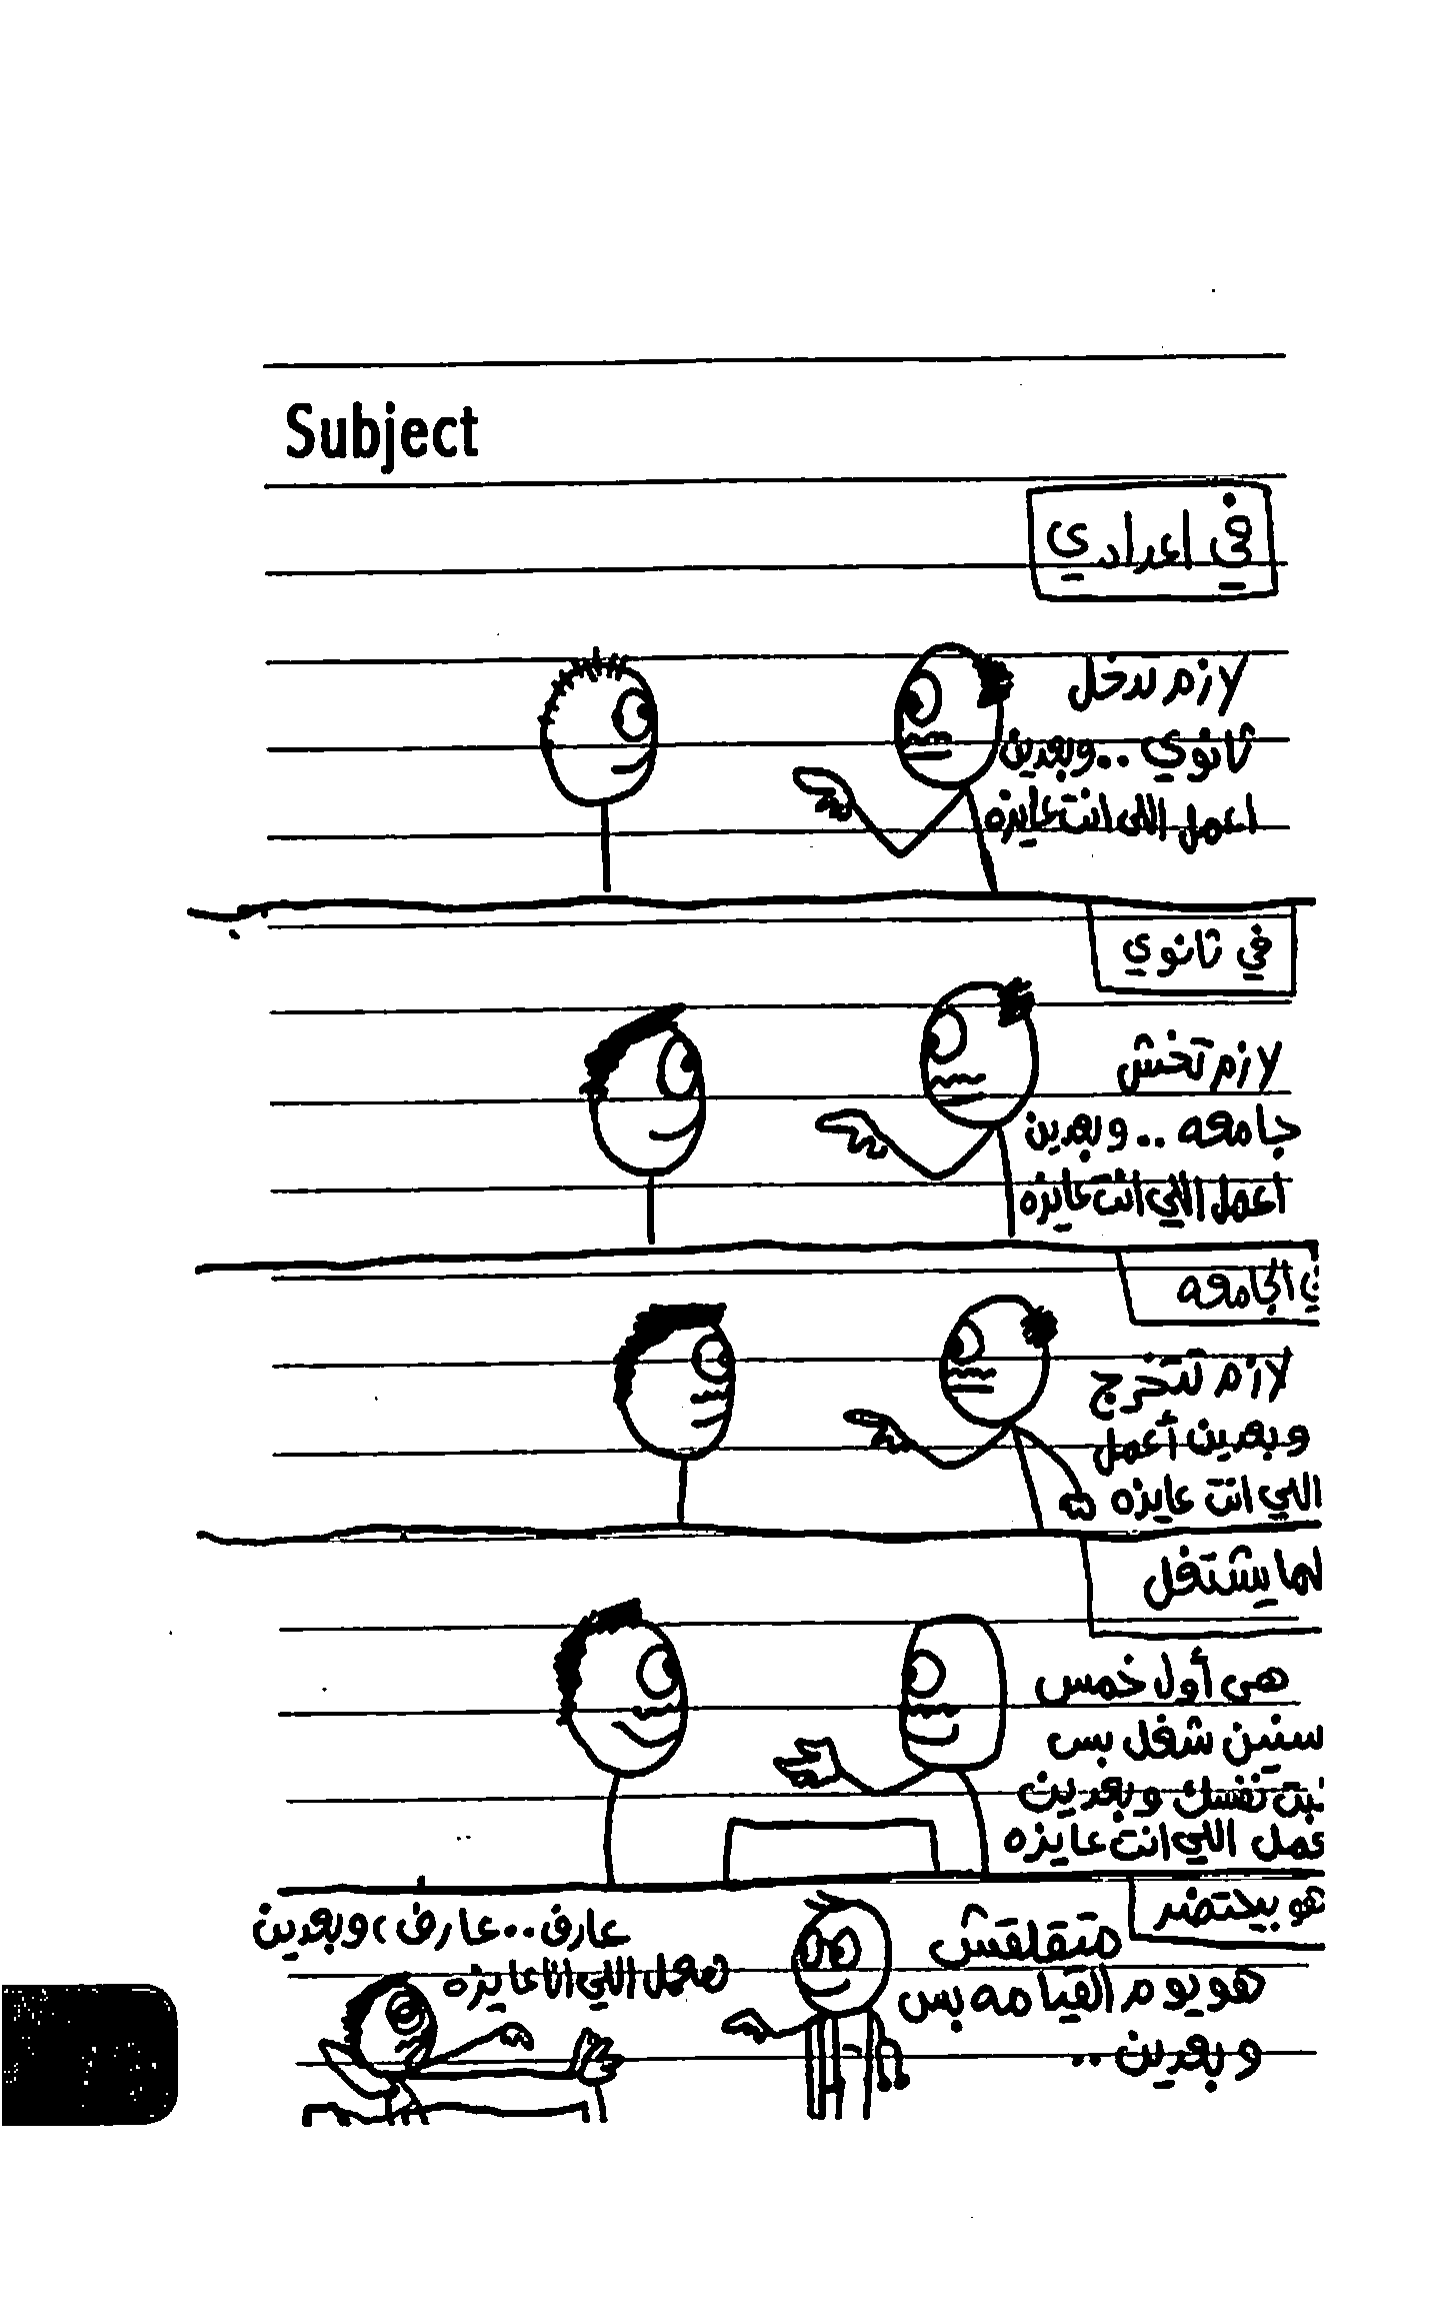 Subject
في اعدادي
لازم تدخل
ثانوي ..وبعدين
اعمل اللي انت عايزه
في ثانوي
لازم تخش
جامعه ..وبعدين
اعمل اللي انت عايزه
الجامعه
لازم تتخرج
وبعدين أعمل
اللي انت عايزه
لما يشتغل
هي أول خمس
سنين شغل بس
نفسك وبعدين
اللي انت عايزه
هو بيحتضر
متقلقش
هو يوم القيامه بس
وبعدين ..
عارف..عارف ،وبعدين
هعمل اللي انا عايزه